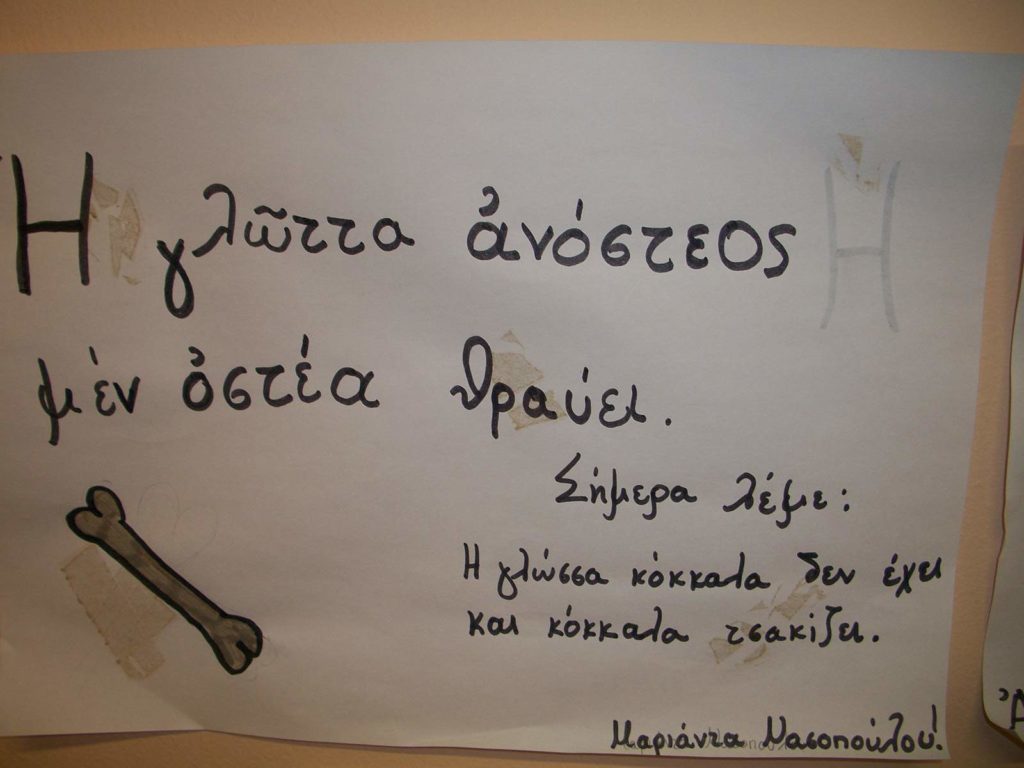 Ἡ γλῶττα ἀνόστεος
μέν ὀστέα θραύει.
Σήμερα λέμε:
Η γλώσσα κόκκαλα δεν έχει
και κόκκαλα τσακίζει.
Μαριάντα Νασοπούλου!